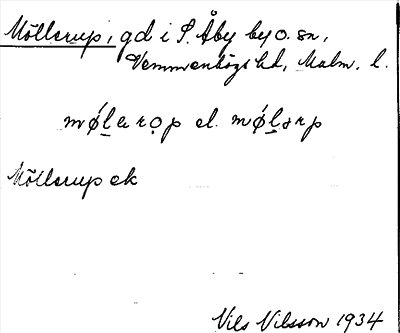 Möllerup, gd i S. Åby by o. sn,
Vemmenhögs hd, Malm. l.
møl̲arọp el. møl̲ərp
Möllerup ek
Nils Nilsson 1934